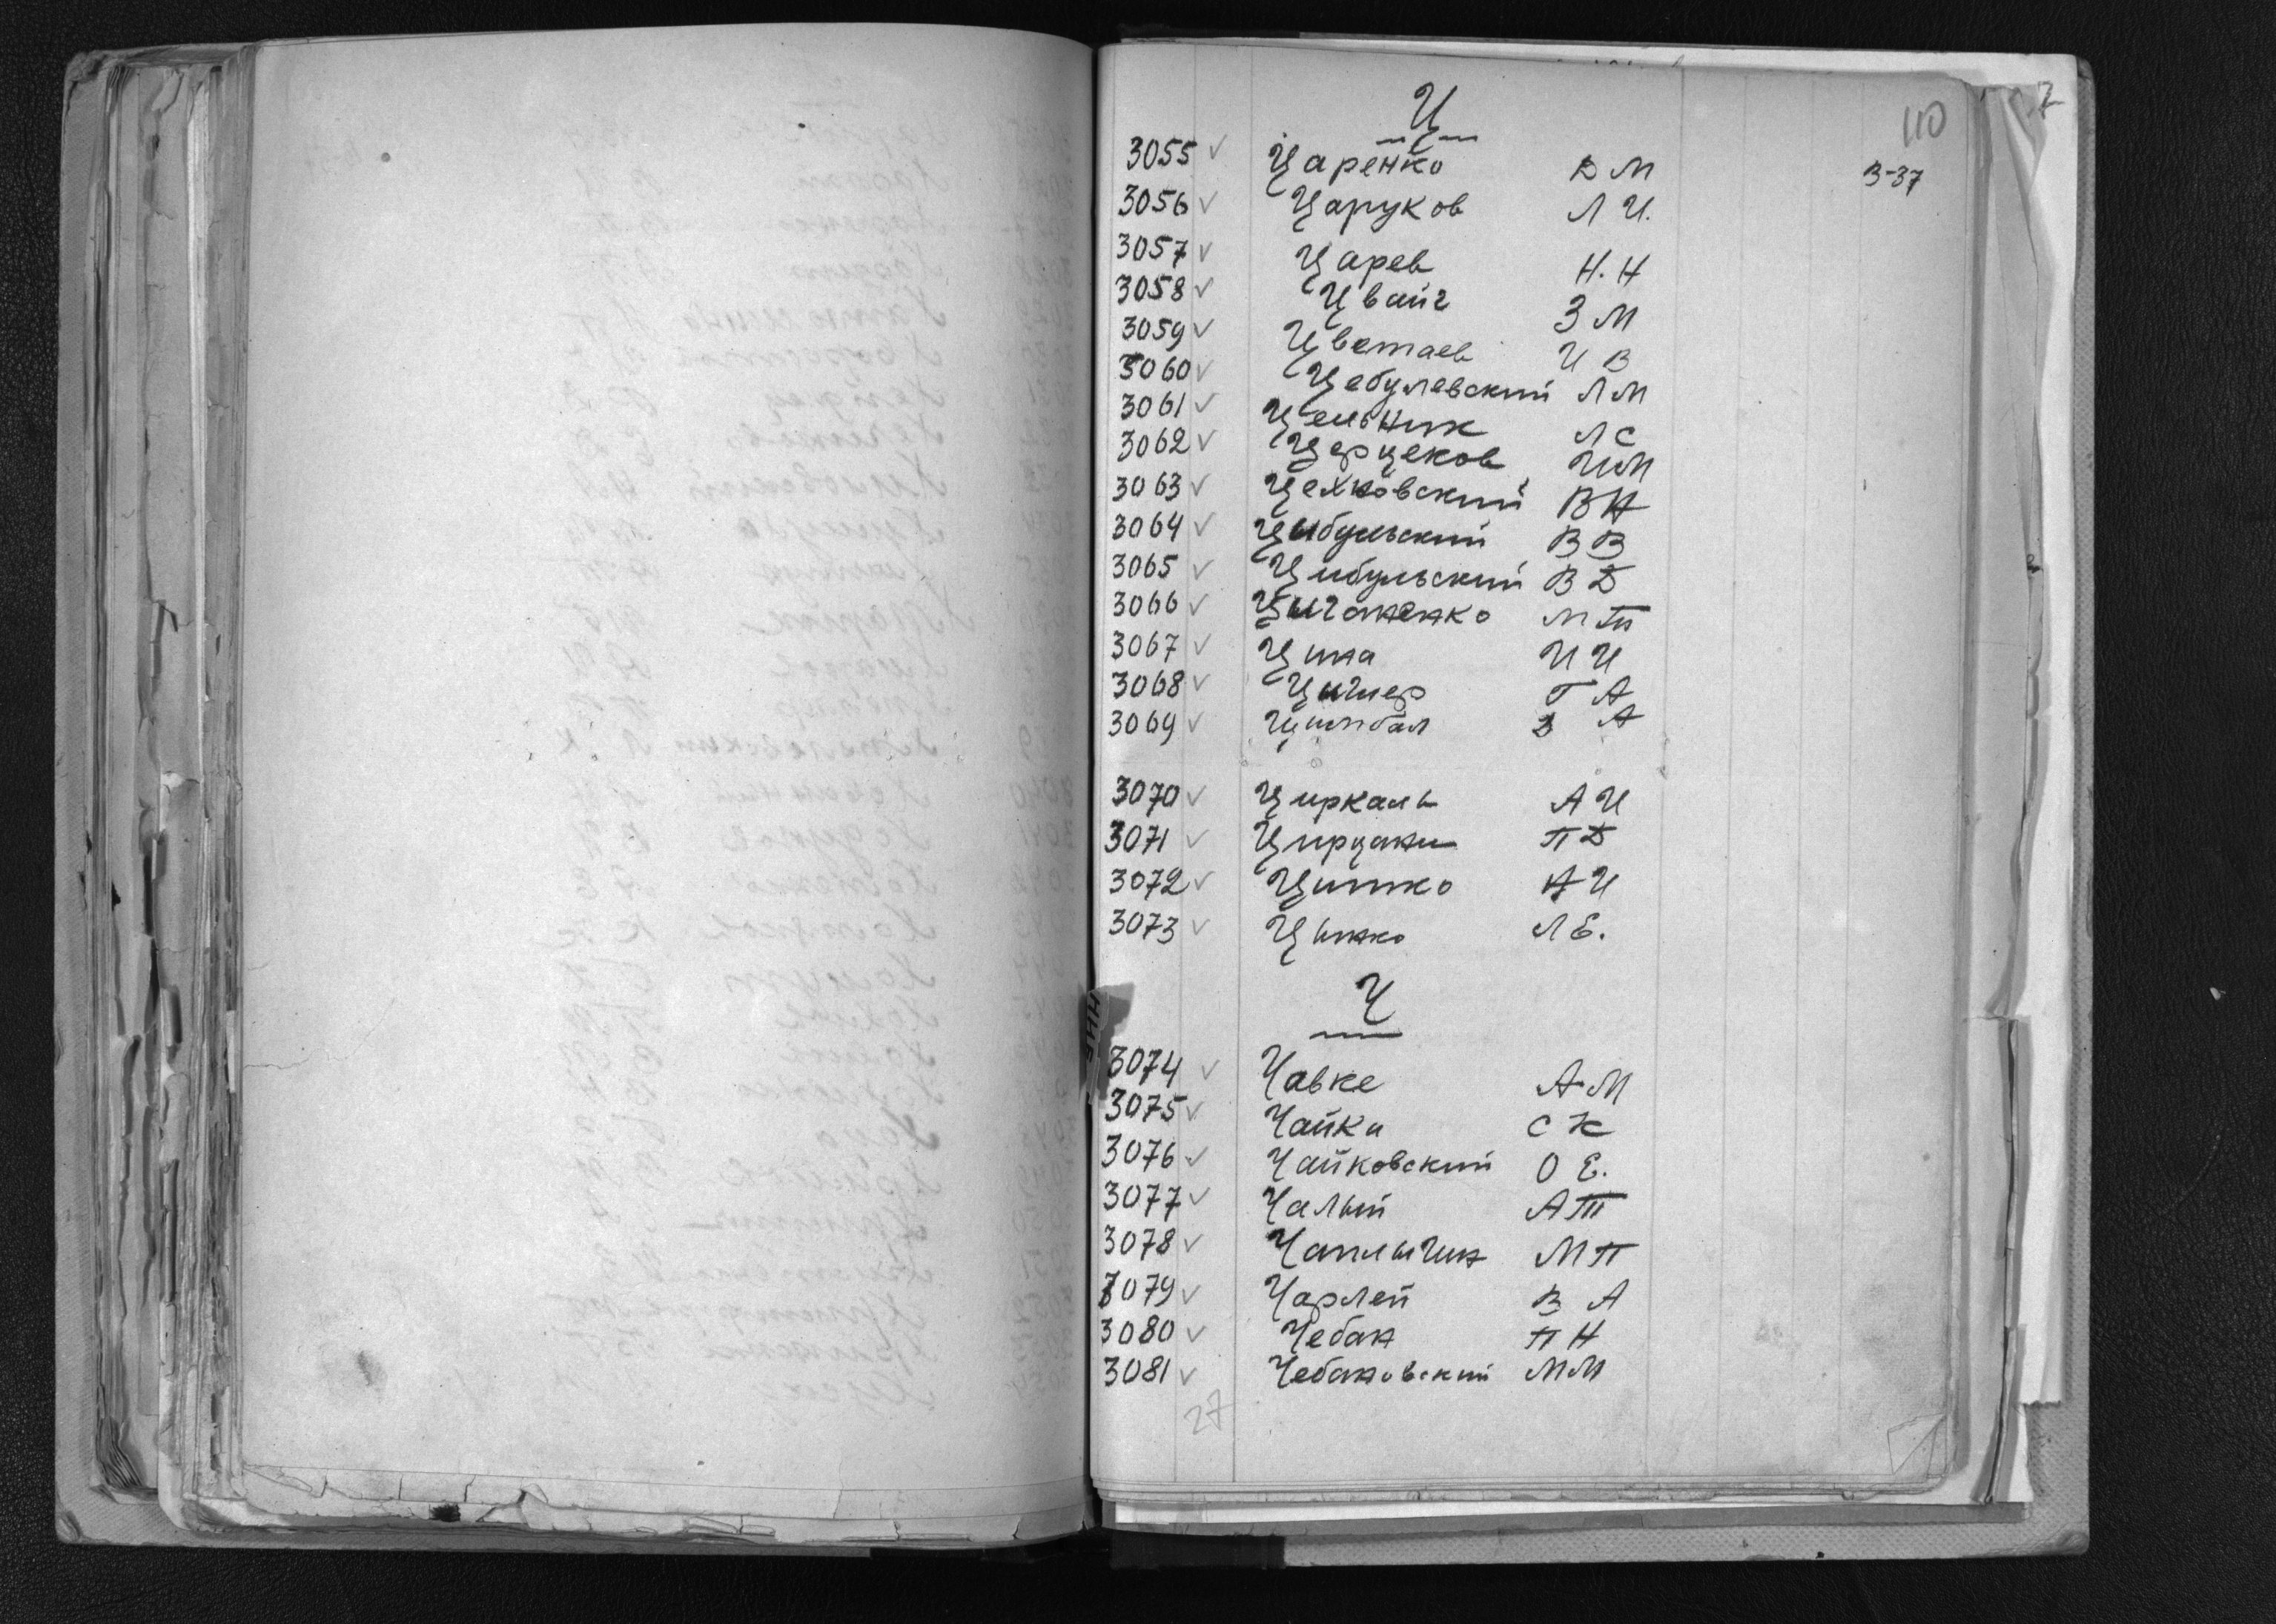 110
Ц
3055 ✓ Царенко Д М В-37
3056 ✓ Царуков Л И.
3057 ✓ Царев Н. Н
3058 ✓ Цвайг З М
3059 ✓ Цветаев И В
3060 ✓ Цебулевский Л М
3061 ✓ Цельник Л С
3062 ✓ Церцеков И М
3063 ✓ Цехковский В Н
3064 ✓ Цыбульский В В
3065 ✓ Цибульский В Д
3066 ✓ Цыганенко М П
3067 ✓ Цина И И
3068 ✓ Г А
3069 ✓ Цимбал Д А
3070 ✓ Циркаль А И
3071 ✓ Цирцаки П Д
3072 ✓ Цитко А И
3073 ✓ Цынко Л Е.
Ч
3074 ✓ Чавке А М
3075 ✓ Чайка С К
3076 ✓ Чайковский О Е.
3077 ✓ Чалый А Т
3078 ✓ Чаплыгин М П
3079 ✓ Чарлей В А
3080 ✓ Чебан П Н
3081 ✓ Чебановский М М
27